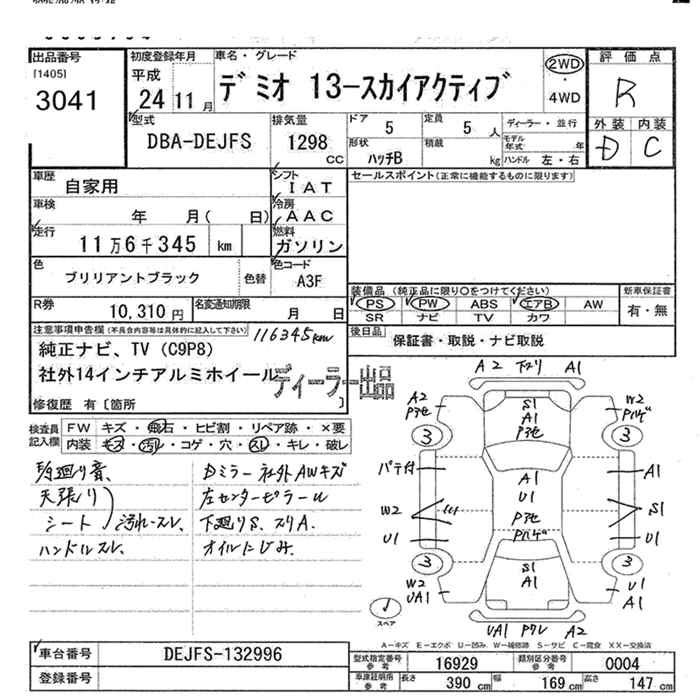 出品番号
[1405]
3041
初度登録年月
平成
24 11 月
車名・グレード
デミオ 13-スカイアクティブ
2WD
・
4WD
評価点
R
外装 内装
D C
型式
DBA-DEJFS
排気量
1298
CC
ドア 5
定員 5 人
形状
ハッチB
積載
kg
ディーラー・並行
モデル年式 年
ハンドル 左・右
車歴
自家用
シフト
IAT
車検
年 月( 日)
冷房
AAC
走行
11万6千345 km
燃料
ガソリン
色
ブリリアントブラック
色替
色コード
A3F
R券
10,310円
名変通知期限
月 日
セールスポイント(正常に機能するものに限ります)
装備品 (純正品に限り○をつけてください)
PS PW ABS エアB AW
SR ナビ TV カワ
新車保証書
有・無
後日品
保証書・取説・ナビ取説
注意事項申告欄(不具合内容等は具体的に記入して下さい)
116345km
純正ナビ、TV (C9P8)
社外14インチアルミホイール
ディーラー出品
修復歴 有〔箇所 〕
検査員記入欄
FW キズ・飛石・ヒビ割・リペア跡・×要
内装 キズ・汚れ・コゲ・穴・スレ・キレ・破レ
天張り
シート 汚れ・スレ
ハンドルスレ
Dミラー 社外AWキズ
左センターピラーU
下廻りS、スリA.
オイルにじみ.
A2 下スリ A1
A2
Pアセ
W2
Pハゲ
S1
A1
Pアセ
3
3
パテ付
A1
A1
U1
Pアセ
Pハゲ
W2
S1
U1
U1
3
3
S1
A1
W2
UA1
U1
A1
スペア
UA1 Pワレ A2
A-キズ E-エクボ U-凹み W-補修跡 S-サビ C-腐食 XX-交換済
車台番号
DEJFS-132996
登録番号
型式指定番号
参考
16929
類別区分番号
参考
0004
車庫証明用
参考
長さ 390 cm
幅 169 cm
高さ 147 cm